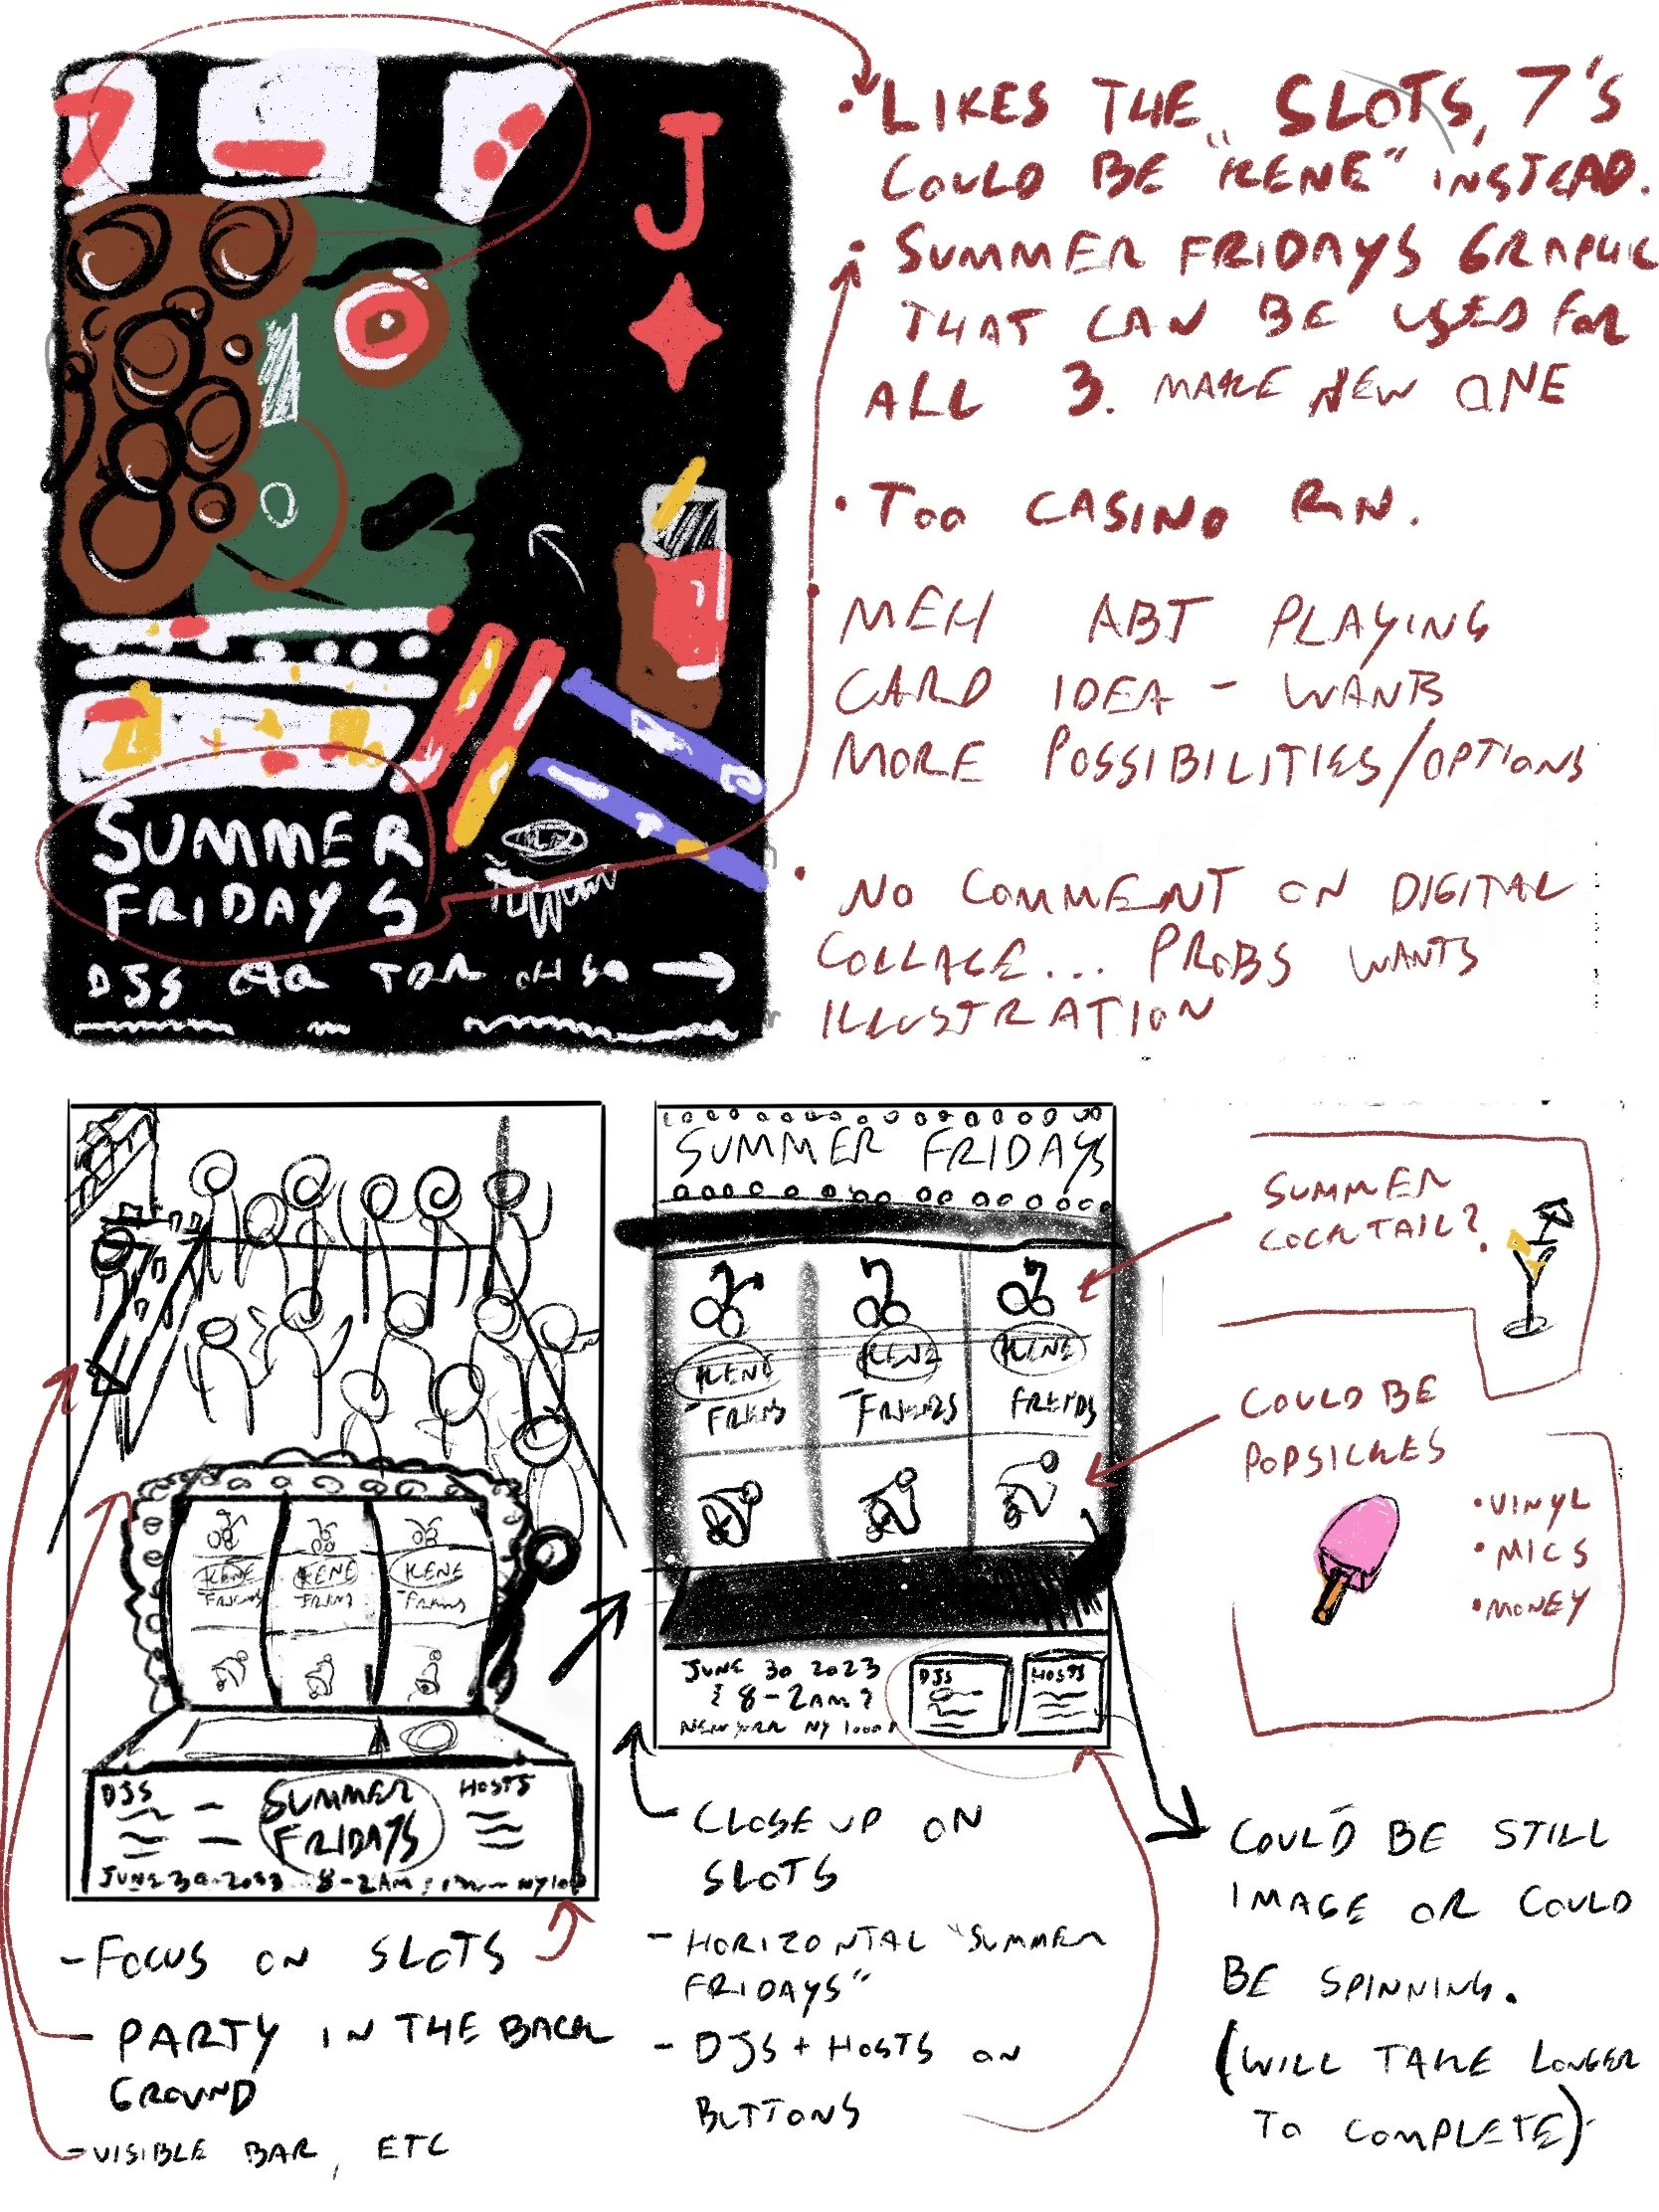 7
J
• LIKES THE SLOTS, 7'S
COULD BE "KENE" INSTEAD.
• SUMMER FRIDAYS GRAPHIC
THAT CAN BE USED FOR
ALL 3. MAKE NEW ONE
• TOO CASINO RN.
• MEH ABT PLAYING
CARD IDEA - WANTS
MORE POSSIBILITIES/OPTIONS
• NO COMMENT ON DIGITAL
COLLAGE... PROBS WANTS
ILLUSTRATION
SUMMER
FRIDAYS
DJS
KENE KENE KENE
DJS
SUMMER
FRIDAYS
HOSTS
JUNE 30 2023 8-2AM
- FOCUS ON SLOTS
- PARTY IN THE BACK
GROUND
- VISIBLE BAR, ETC
SUMMER FRIDAYS
KENE KENE KENE
FRIENDS FRIENDS
JUNE 30 2023
8-2AM
NEW YORK NY
DJS
HOSTS
CLOSE UP ON
SLOTS
- HORIZONTAL "SUMMER
FRIDAYS"
- DJS + HOSTS ON
BUTTONS
SUMMER
COCKTAIL?
COULD BE
POPSICKLES
• VINYL
• MICS
• MONEY
COULD BE STILL
IMAGE OR COULD
BE SPINNING.
(WILL TAKE LONGER
TO COMPLETE)